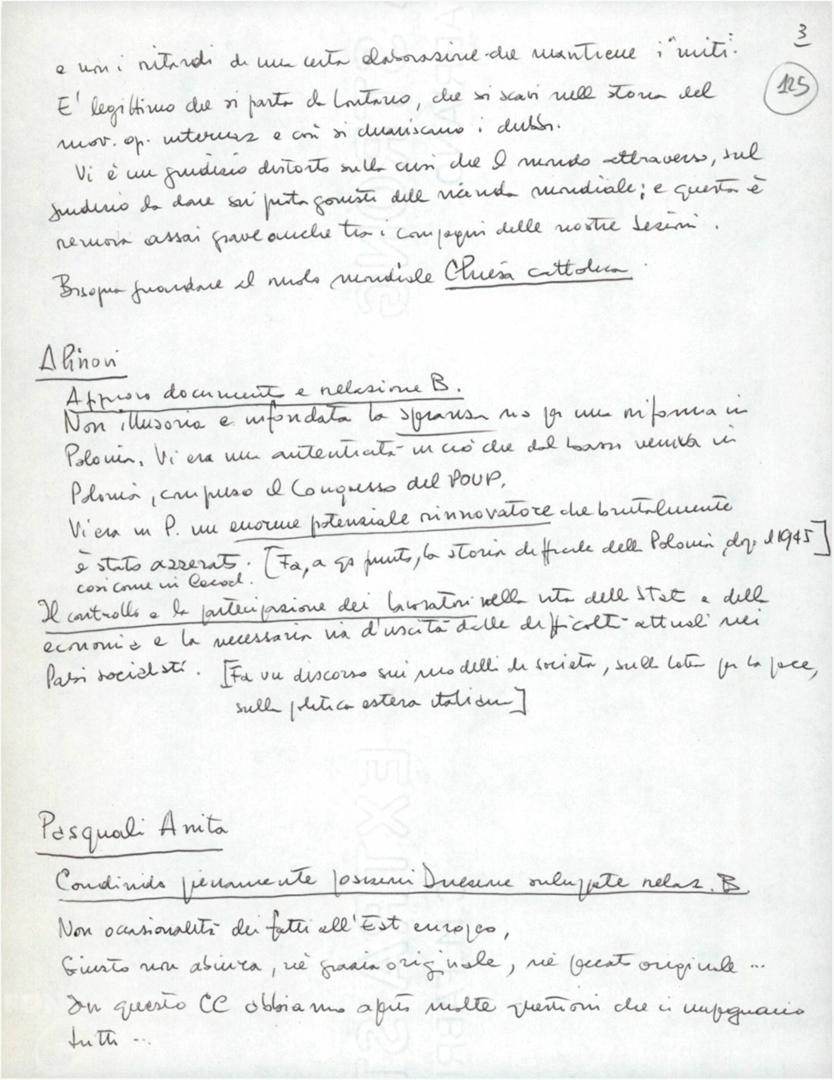 3
125
e non i ritardi di una certa elaborazione che mantiene i "miti".
E' legittimo che si parta da lontano, che si scavi nella storia del
mov. op. internaz e così si chiariscano i dubbi.
Vi è un giudizio distorto sulla crisi che il mondo attraversa, sul
giudizio da dare sui protagonisti della vicenda mondiale; e questa è
remora assai grave anche tra i compagni delle nostre Sezioni.
Bisogna guardare al ruolo mondiale Chiesa cattolica.
Alinovi
Approvo documento e relazione B.
Non illusoria e infondata la speranza ns per una riforma in
Polonia. Vi era una autenticità in ciò che dal basso veniva in
Polonia, compreso il Congresso del POUP.
Vi era in P. un enorme potenziale rinnovatore che brutalmente
è stato azzerato. [Fa, a qs punto, la storia difficile della Polonia, dopo il 1945]
così come in Cecosl.
Il controllo e la partecipazione dei lavoratori nella vita dello Stato e della
economia è la necessaria via d'uscita dalle difficoltà attuali nei
Paesi socialisti. [Fa un discorso sui modelli di società, sulla lotta per la pace,
sulla politica estera italiana]
Pasquali Anita
Condivido pienamente posizioni Direzione sviluppate relaz. B.
Non occasionalità dei fatti all'Est europeo,
Giusto non abiura, né grazia originale, né peccato originale ...
In questo CC abbiamo aperto molte questioni che ci impegnano
tutti ...